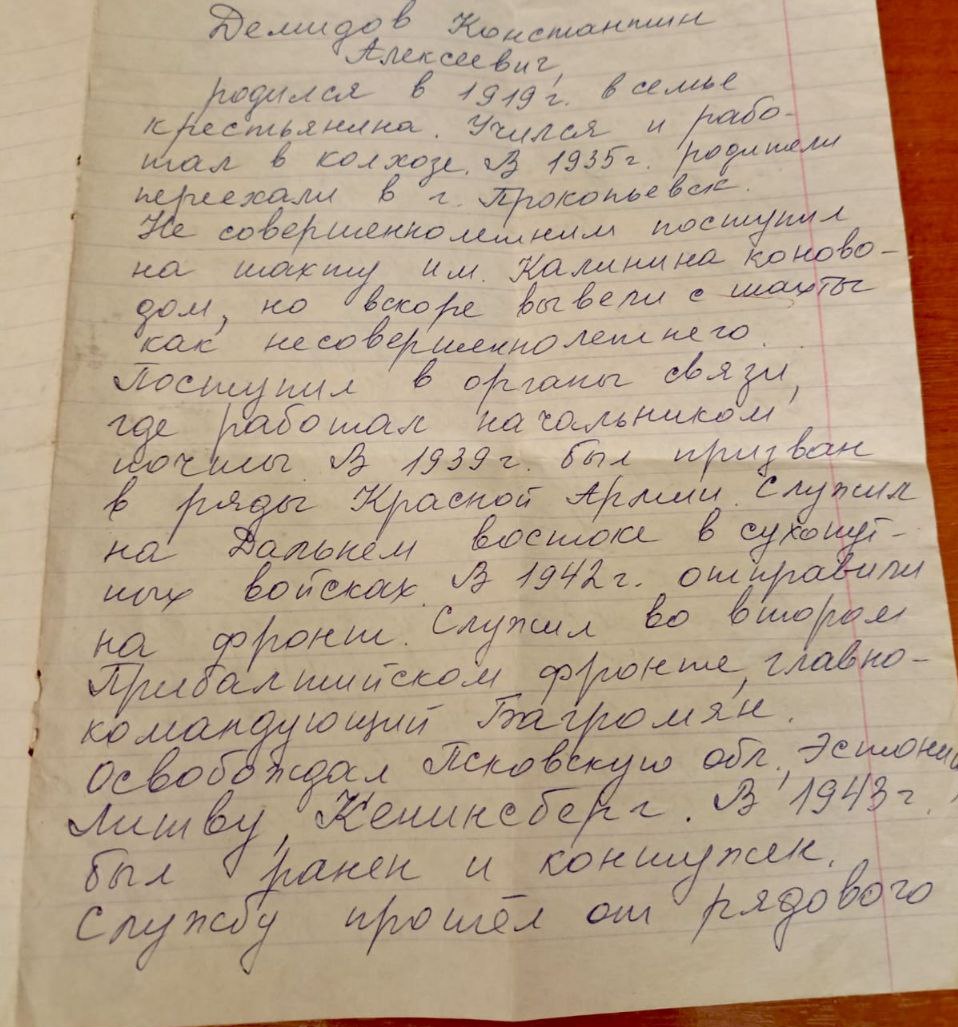 Демидов Константин
Алексеевич,
родился в 1919г. в семье
крестьянина. Учился и рабо-
тал в колхозе. В 1935г. родители
переехали в г. Прокопьевск.
Не совершеннолетним поступил
на шахту им. Калинина коново-
дом, но вскоре вывели с шахты
как несовершеннолетнего.
Поступил в органы связи,
где работал начальником
почты. В 1939г. был призван
в ряды Красной Армии. Служил
на Дальнем востоке в сухопут-
ных войсках. В 1942г. отправили
на фронт. Служил во втором
Прибалтийском фронте, главно-
командующий Баграмян.
Освобождал Псковскую обл., Эстонию
Литву, Кенинсберг. В 1943г.
был ранен и контужен.
Службу прошёл от рядового